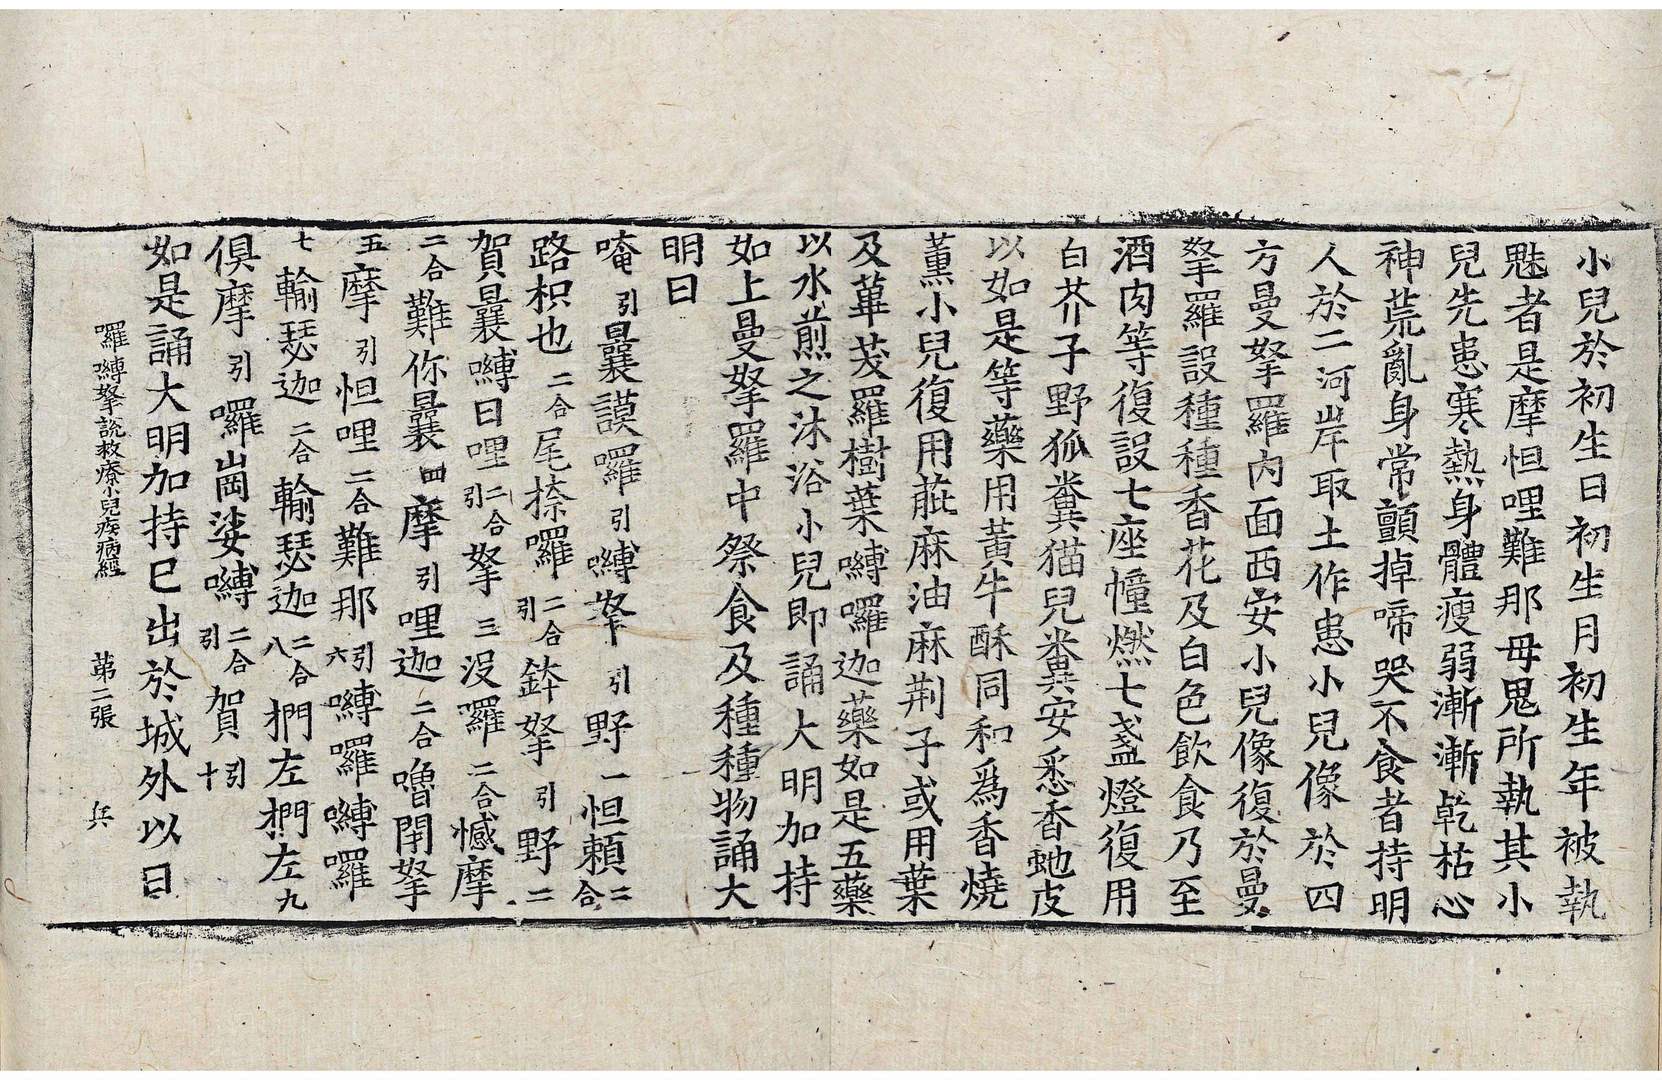 小兒於初生日初生月初生年被執
魅者是摩怛哩難那母鬼所執其小
兒先患寒熱身體瘦弱漸漸乾枯心
神荒亂身常顫掉啼哭不食者持明
人於二河岸取土作患小兒像於四
方曼拏羅內面西安小兒像復於曼
拏羅設種種香花及白色飲食乃至
酒肉等復設七座幢燃七盞燈復用
白芥子野狐糞猫兒糞安悉香虵皮
以如是等藥用黃牛酥同和爲香燒
薰小兒復用萞麻油麻荆子或用葉
及蓽茇羅樹葉嚩囉迦藥如是五藥
以水煎之沐浴小兒即誦大明加持
如上曼拏羅中祭食及種種物誦大
明曰
唵引曩謨囉引嚩拏引野一怛賴二合
路枳也二合尾捺囉二合引鉢拏引野二
賀曩嚩日哩二合引拏三沒囉二合憾摩
二合難你曩四摩引哩迦二合嚕閉拏
五摩引怛哩二合難那引六嚩囉嚩囉
七輸瑟迦二合輸瑟迦二合八捫左捫左九
俱摩引囉崗娑嚩二合引賀引十
如是誦大明加持已出於城外以日
囉嚩拏說救療小兒疾病經 第二張 兵